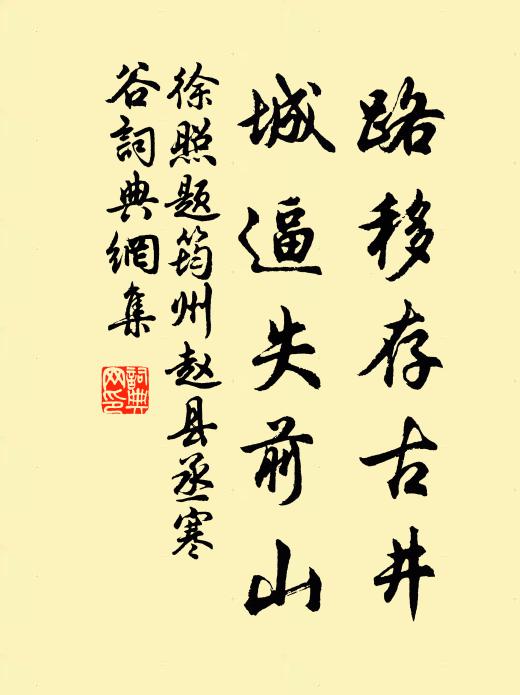 路移存古井
城逼失前山
徐照题筠州赵县丞寒
谷詞典網集
詞典
网印